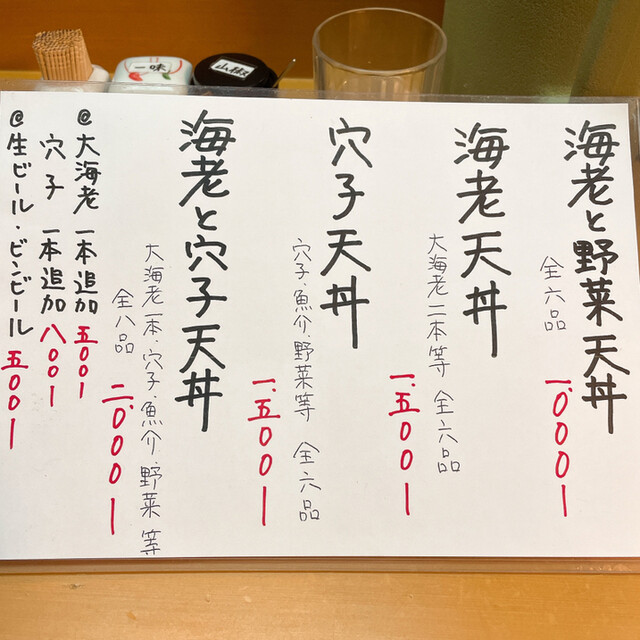 海老と野菜天丼
全六品
一、〇〇〇ー
海老天丼
大海老二本等 全六品
一、五〇〇ー
穴子天丼
穴子・魚介・野菜等 全六品
一、五〇〇ー
海老と穴子天丼
大海老一本・穴子・魚介・野菜 等
全八品
二、〇〇〇ー
@大海老 一本追加 五〇〇ー
穴子 一本追加 八〇〇ー
@生ビール・ビンビール 五〇〇ー
一味
山椒